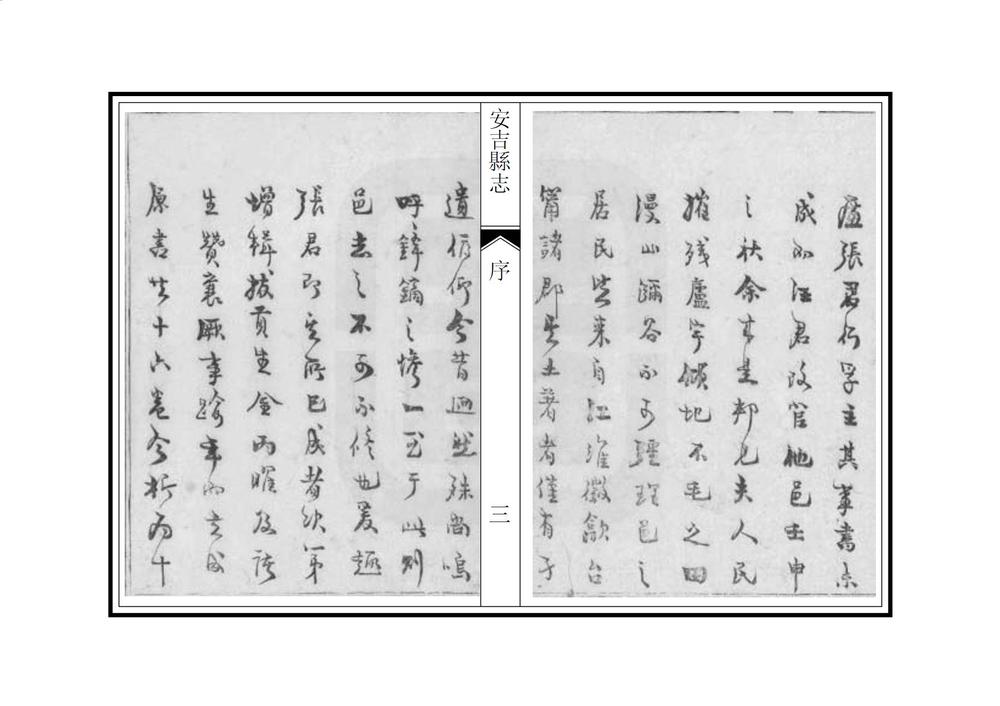 張君行孚主其事書未
成而汪君改官他邑壬申
之秋余來是邦見夫人民
摧殘廬宇傾圮不毛之田
漫山彌谷不可疆理邑之
居民皆來自江淮徽歙台
甯諸郡其土著者僅有孑
安吉縣志
序
三
遺俯仰今昔迥然殊尚嗚
呼鋒鏑之慘一至于此則
邑志之不可不修也爰趣
張君即其所已成者次第
增輯拔貢生金丙曜及諸
生贊襄厥事踰年而志成
原書共十六卷今析為十